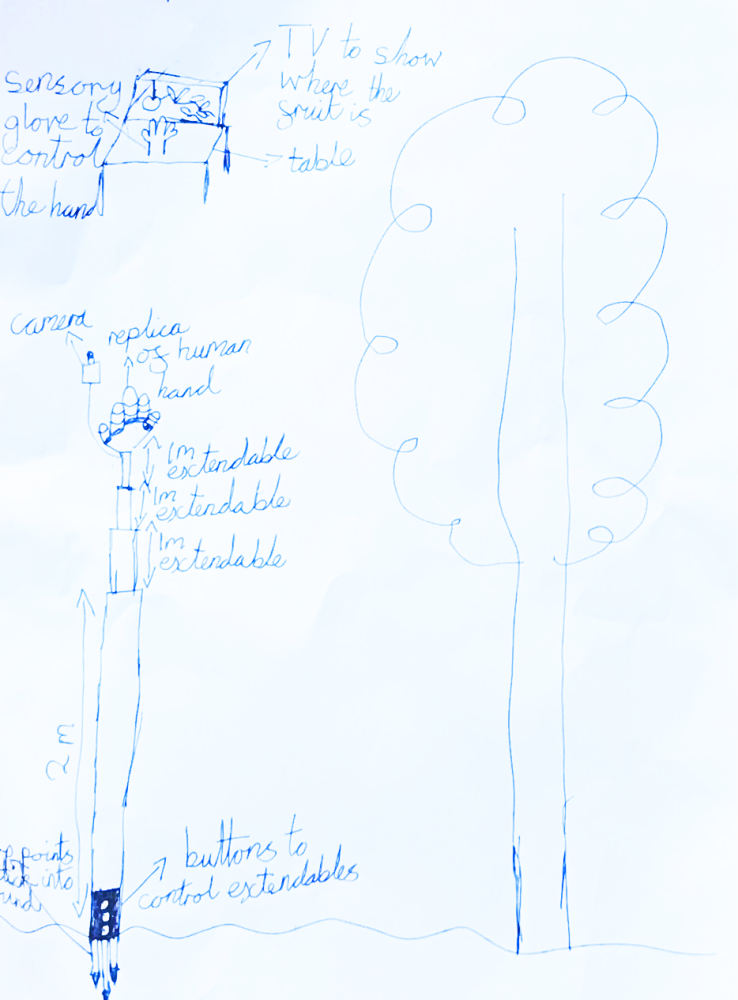 TV to show
where the
fruit is
sensory
glove to
control
the hand
table
camera
replica
of human
hand
1m
extendable
1m
extendable
1m
extendable
2m
points
into
buttons to
control extendables